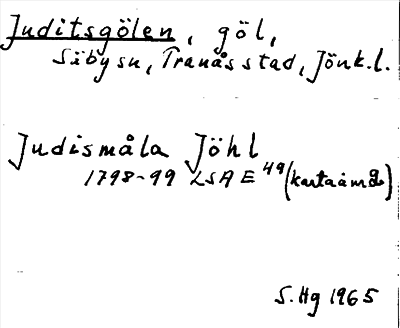 Juditsgölen, göl,
Säby sn, Tranås stad, Jönk.l.
Judismåla Jöhl
1798-99 LSA E 49 (karta o. måb)
S. Hg 1965